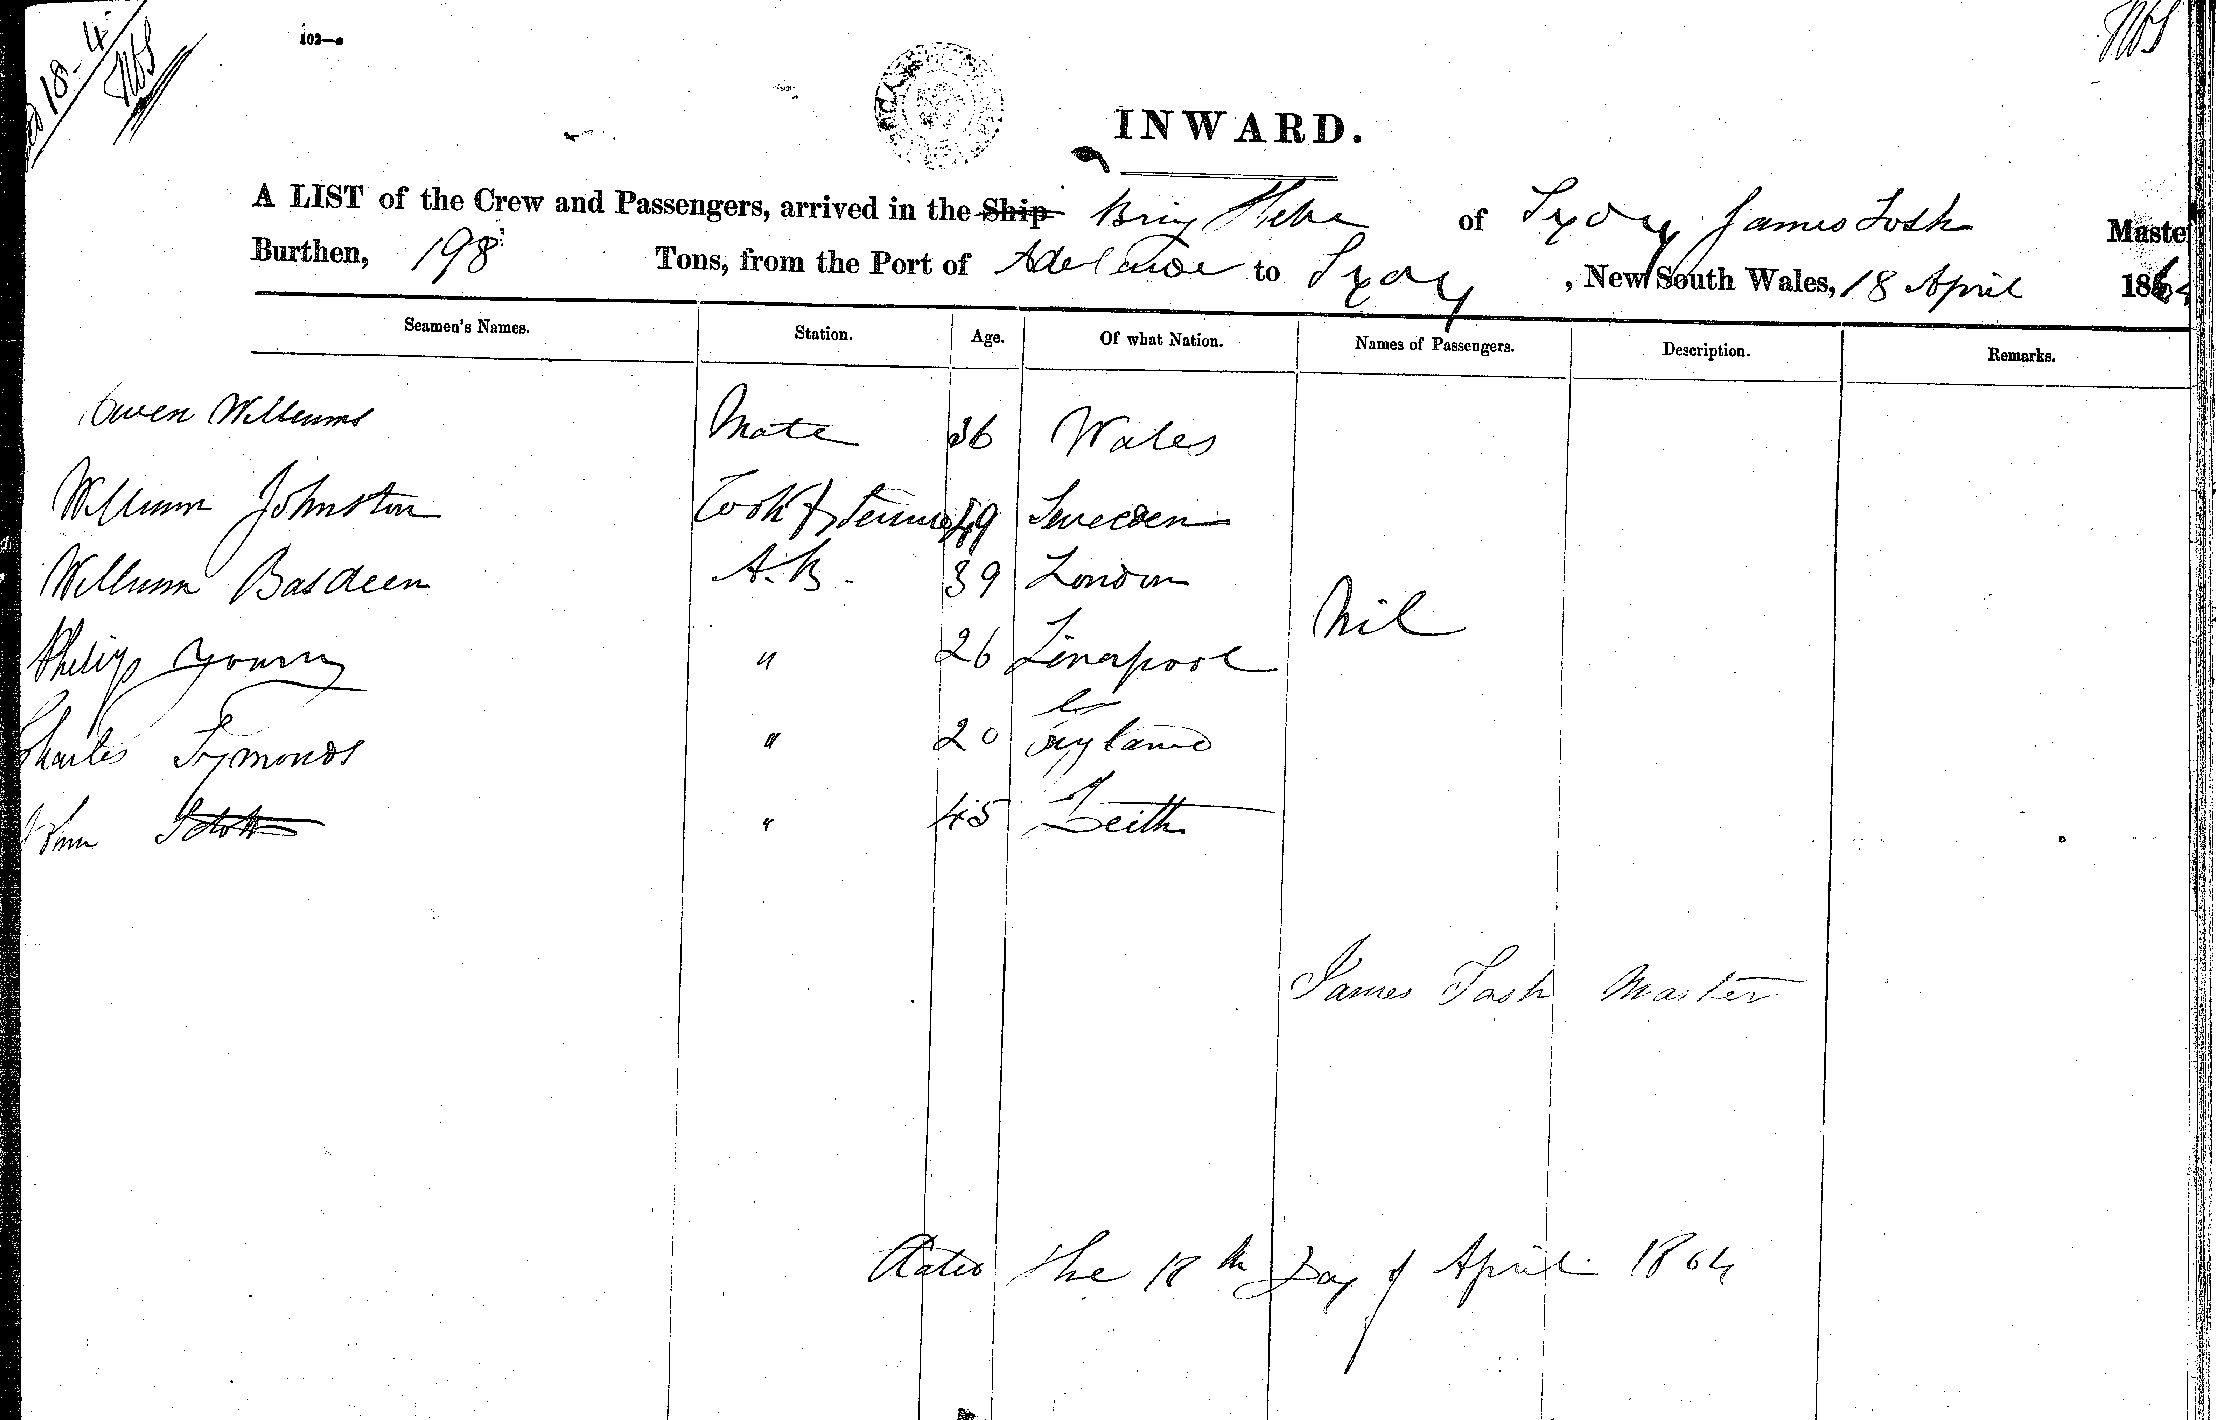 18-4
102—e
INWARD.
A LIST of the Crew and Passengers, arrived in the Ship Brig Hebe of Sydney James Tosh Master
Burthen, 198 Tons, from the Port of Adelaide to Sydney, New South Wales, 18 April 1864
Seamen's Names. Station. Age. Of what Nation. Names of Passengers. Description. Remarks.
Owen Williams Mate 36 Wales
William Johnston Cook & Steward 49 Sweden
William Basdeen A.B. 39 London
Nil
Philip Young " 26 Liverpool
Charles Symonds " 20 England
John Scott " 45 Leith
James Tosh Master
Dated the 18th Day of April 1864